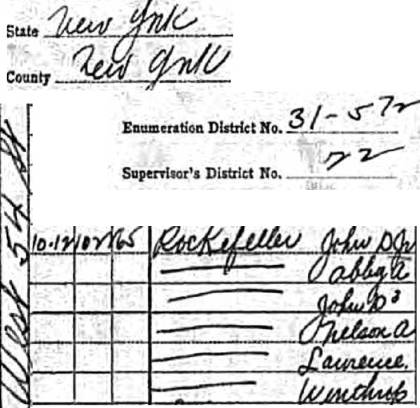 State New York
County New York
Enumeration District No. 31-572
Supervisor's District No. 22
West 54 St
10-12 102 65 Rockefeller John D Jr
— Abby A
— John D 3
— Nelson A
— Laurence
— Winthrop